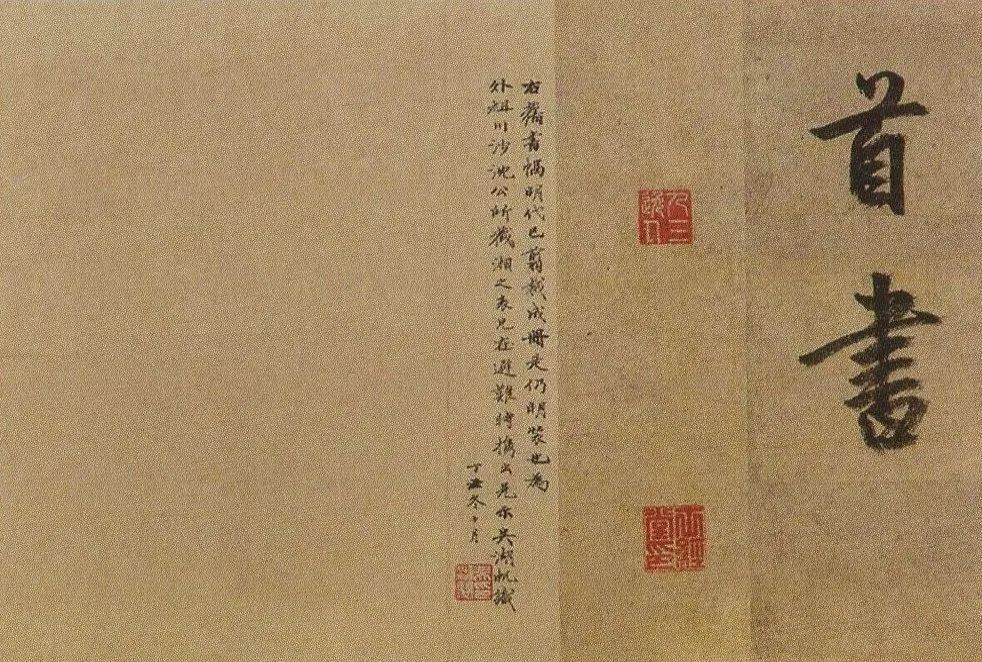 首書
右舊書幅明代已翦裁成冊是仍明裝也為
外祖川沙沈公所藏湘之表兄在避難時攜出見示吳湖帆識
丁丑冬十月